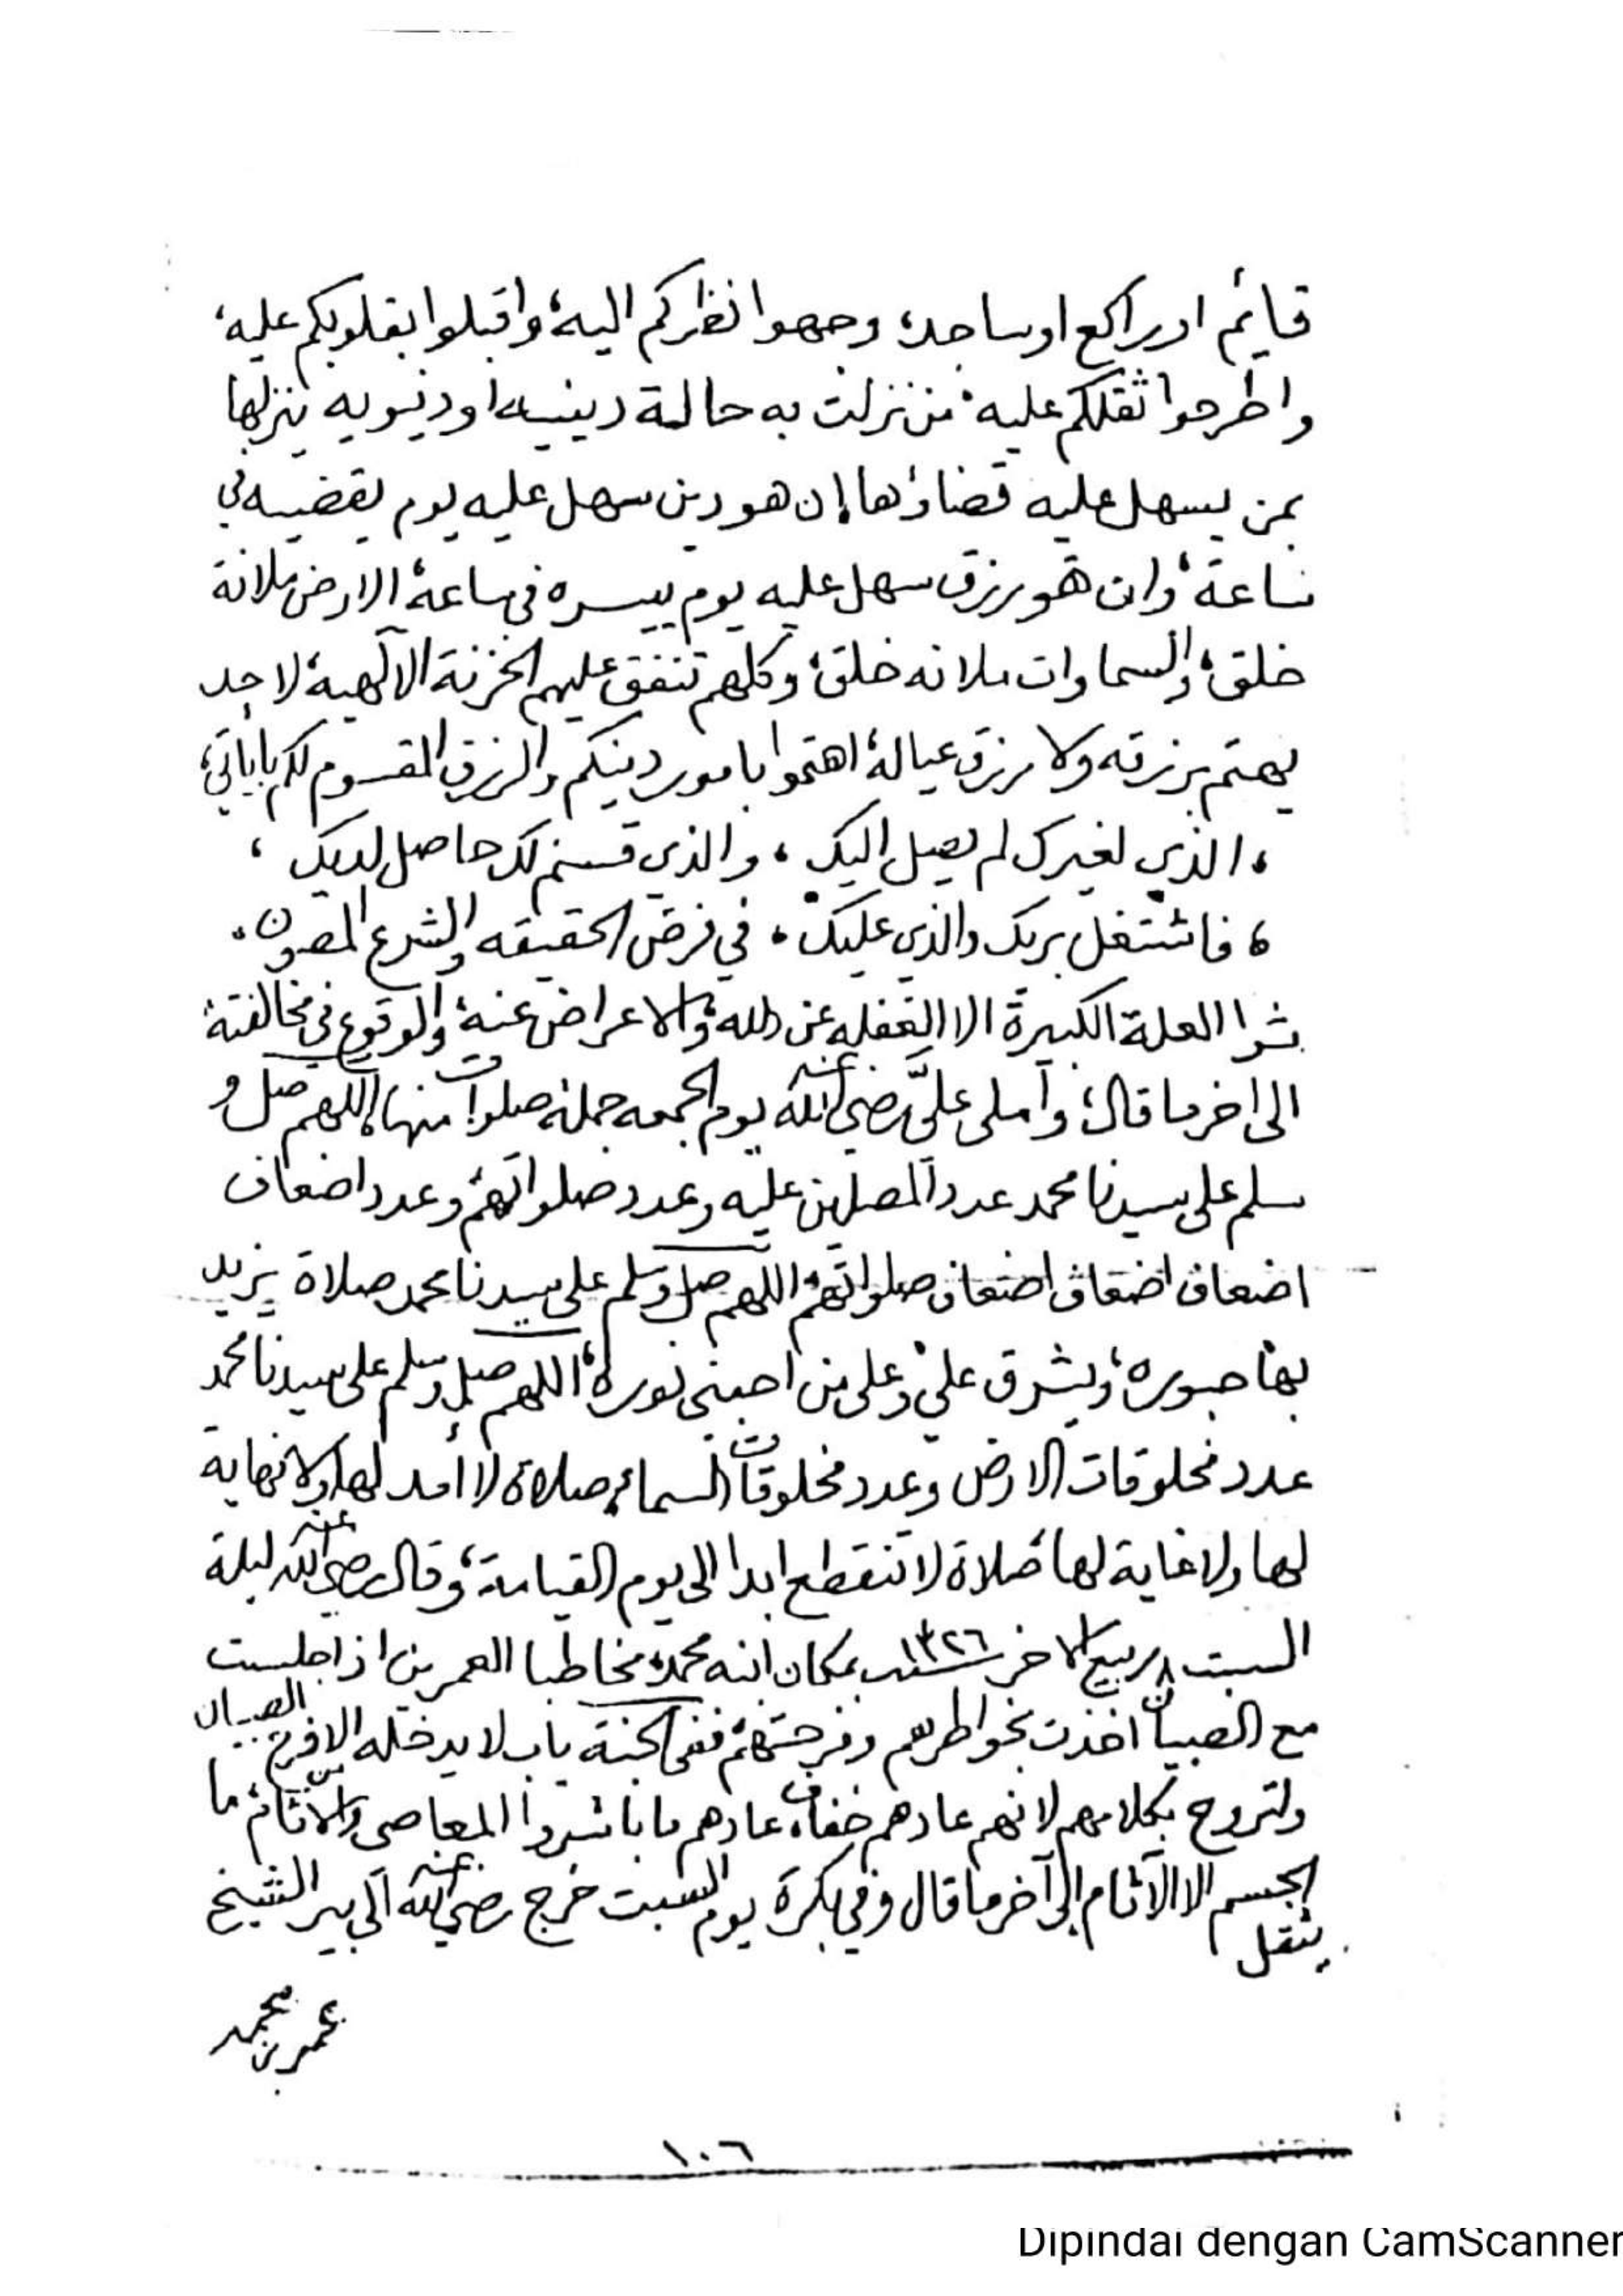 قايم او راكع او ساجد، وجهوا نظركم اليه، واقبلوا بقلوبكم عليه،
واطرحوا ثقلكم عليه، من نزلت به حالة دينيه او دنيويه ينزلها
بمن يسهل عليه قضاؤها، إن هو دين سهل عليه يوم يقضيه في
ساعة، وان هو رزق سهل عليه يوم ييسره في ساعة، الارض ملانة
خلق، والسماوات ملانه خلق، وكلهم تنفق عليهم الخزنة الآلهية، لا حد
يهتم برزقه ولا برزق عياله، اهتموا بامور دينكم والرزق المقسوم لكم باياتي،
، الذي لغيرك لم يصل اليك ، والذي قسم لك حاصل لديك ،
، فاشتغل بربك والذي عليك ، في فرض الحقيقه والشرع المصون .
شوا العلة الكبيرة الا الغفله عن الله، والاعراض عنه، والوقوع في مخالفته
الى اخر ما قال، وأملى عليَّ رضي الله عنه يوم الجمعه جملة صلوات منها، اللهم صل و
سلم على سيدنا محمد عدد المصلين عليه وعدد صلواتهم، وعدد اضعاف
اضعاف اضعاف اضعاف صلواتهم، اللهم صل وسلم على سيدنا محمد صلاة يزيد
بها حبوره، ويشرق علي، وعلى من احبني نوره، اللهم صل وسلم على سيدنا محمد
عدد مخلوقات الارض وعدد مخلوقات السماء، صلاة لا أمد لها، ولا نهاية
لها ولا غاية لها صلاة لا تنقطع ابدا الى يوم القيامة، وقال رضي الله عنه ليلة
السبت ٨ ربيع الاخر سنة ١٣٢٦ بمكان ابنه محمد، مخاطبا العمر بن اذا جلست
مع الصبيان اخذت بخواطرهم وفرحتهم، ففي الجنة باب لا يدخله الا فرح الصبيان
ولتروح بكلامهم لانهم عادهم خفاف، عادهم ما باشروا المعاصي والآثام، ما
يثقل الجسم الا الآثام إلى آخر ما قال وفي بكرة يوم السبت خرج رضي الله عنه الى بير الشيخ
عمر بن محمد
١٠٦
Dipindai dengan CamScanner